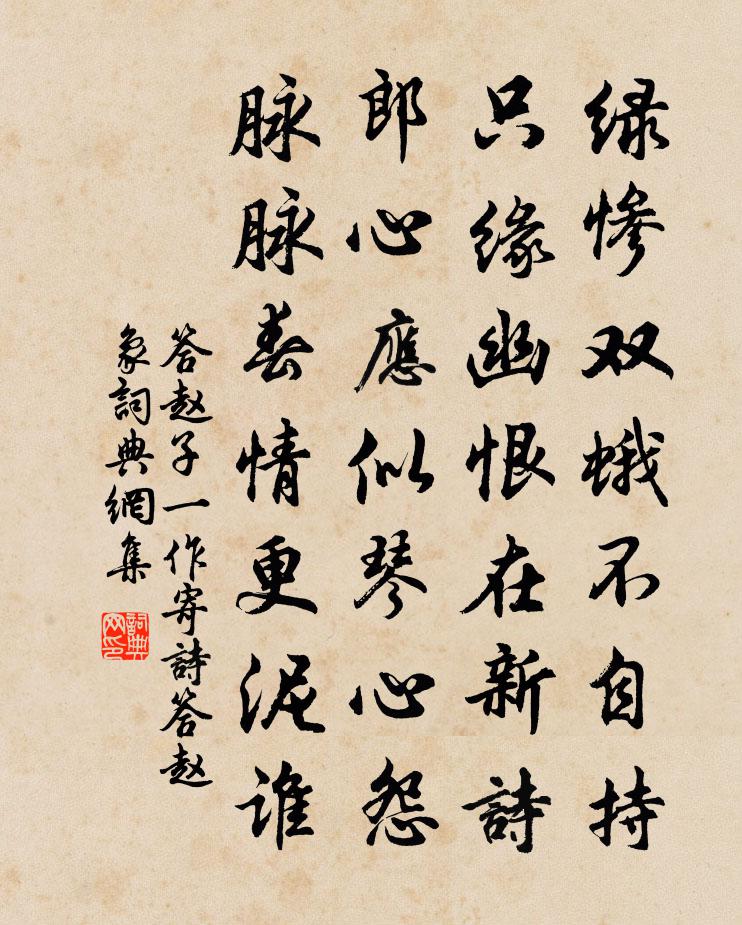 绿惨双蛾不自持
只缘幽恨在新詩
郎心應似琴心怨
脉脉春情更泥谁
答赵子一作寄詩答赵
象詞典網集
詞典
网印